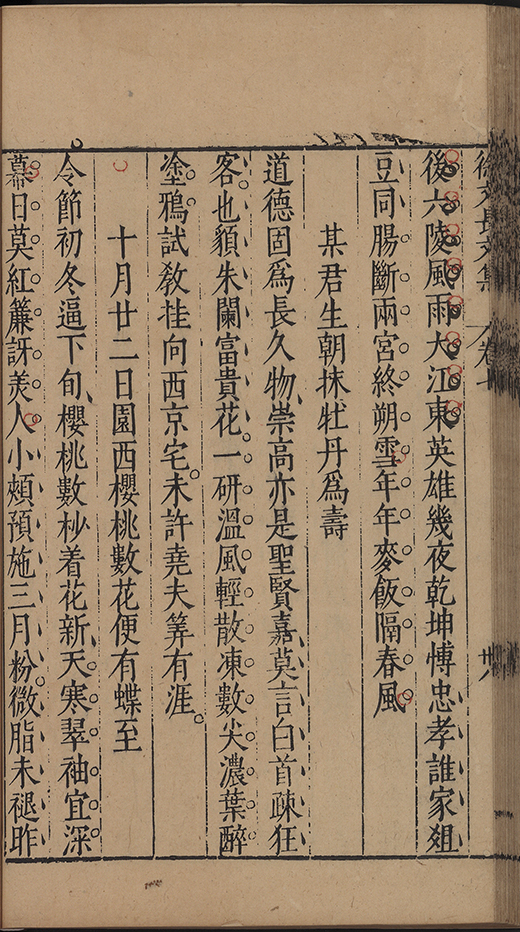 徐文長文集 卷七 廿八
後六陵風雨大江東英雄幾夜乾坤愽忠孝誰家爼
豆同腸斷兩宮終朔雪年年麥飯隔春風
某君生朝抹牡丹為壽
道德固為長久物崇高亦是聖賢嘉莫言白首疎狂
客也貌朱闌富貴花一研溫風輕散凍數尖濃葉醉
塗鴉試敎挂向西京宅未許堯夫筭有涯
十月廿二日園西櫻桃數花便有蝶至
令節初冬逼下旬櫻桃數杪着花新天寒翠袖宜深
幕日莫紅簾訝美人小頰預施三月粉微脂未褪昨